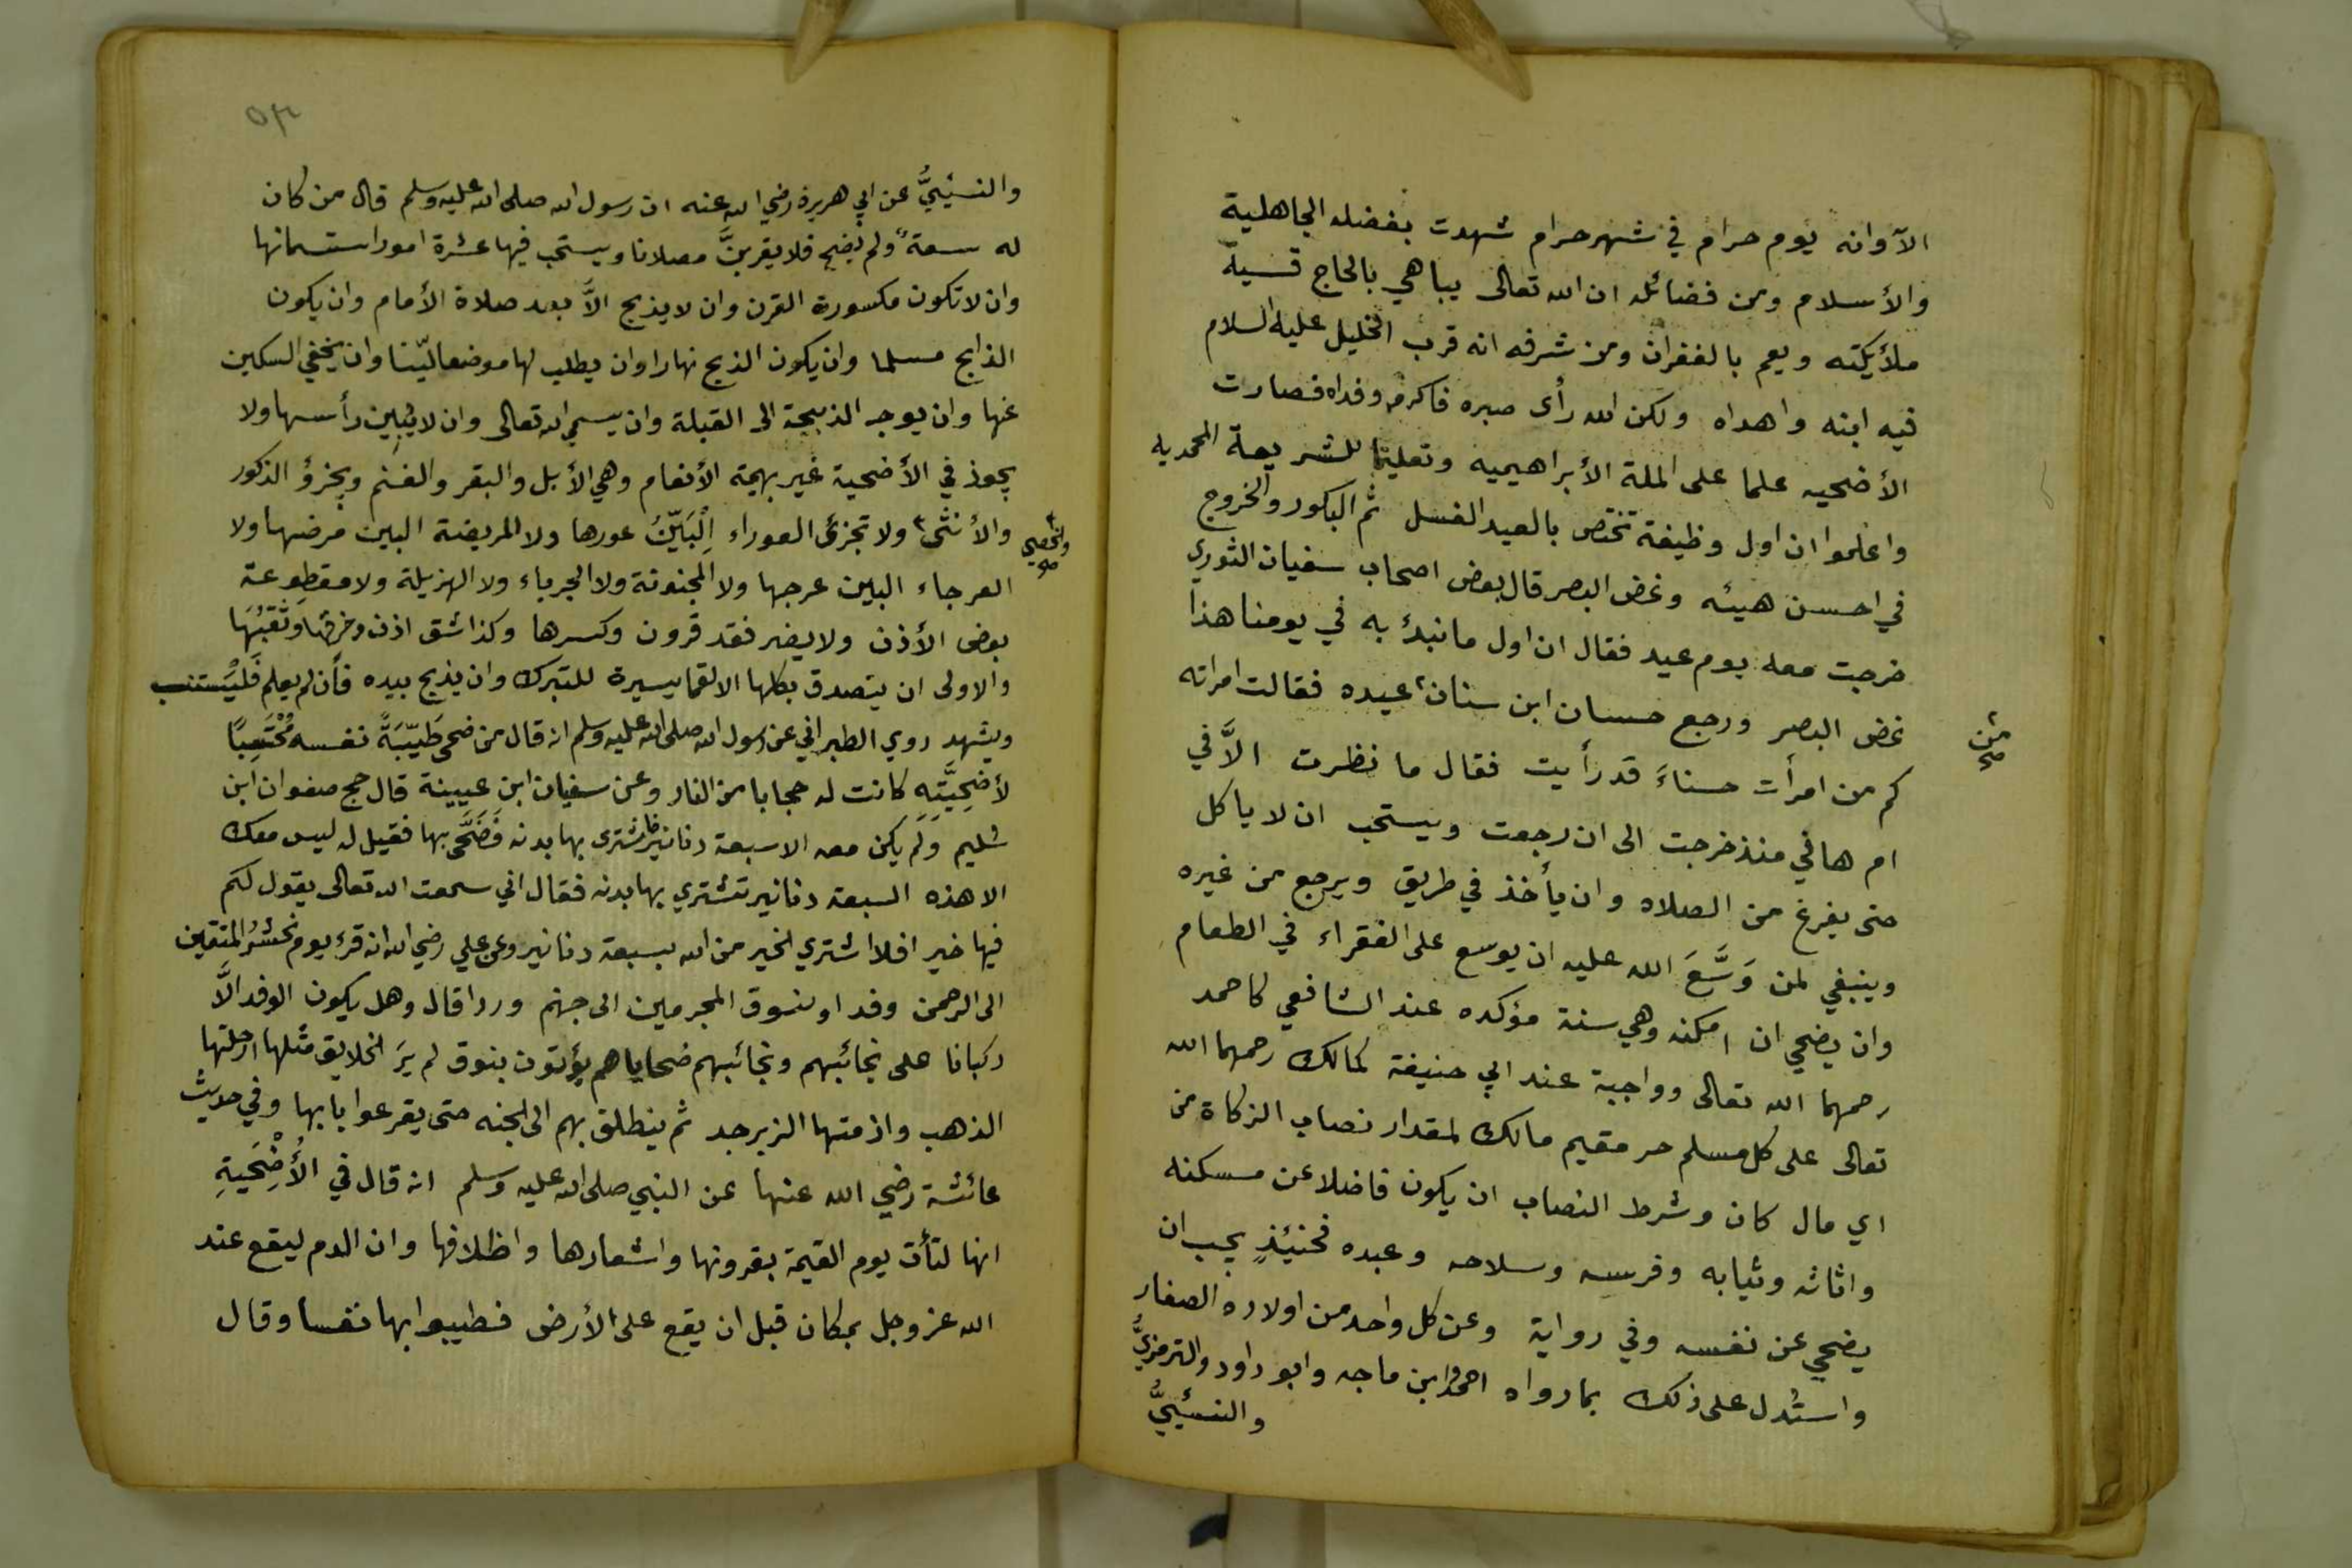 الآ وانه يوم حرام في شهر حرام شهدت بفضله الجاهلية
والأسلام ومن فضائله ان الله تعالى يباهي بالحاج فيه
ملأيكته ويعم بالغفران ومن شرفه انه قرب الخليل عليه السلام
فيه ابنه واهداه ولكن الله رأى صبره فاكرمه وفداه فصارت
الأضحيه علما على الملة الأبراهيميه وتعليما للشريعة المحمديه
واعلموا ان اول وظيفة تختص بالعيد الغسل ثم البكور والخروج
في احسن هيئه وغض البصر قال بعض اصحاب سفيان الثوري
خرجت معه يوم عيد فقال ان اول ما نبدؤ به في يومنا هذا
غض البصر ورجع حسان ابن سنان عيده فقالت امراته
من
صح
كم من امرأت حسناءَ قد رأيت فقال ما نظرت الاَّ في
ام هافي منذ خرجت الى ان رجعت ويستحب ان لا ياكل
حتى يفرغ من الصلاه وان يأخذ في طريق ويرجع من غيره
وينبغي لمن وَسَّعَ الله عليه ان يوسع على الفقراء في الطعام
وان يضحي ان امكنه وهي سنة مؤكده عند الشافعي كاحمد
رحمهما الله تعالى وواجبة عند ابي حنيفة كمالك رحمهما الله
تعالى على كل مسلم حر مقيم مالك لمقدار نصاب الزكاة من
اي مال كان وشرط النصاب ان يكون فاضلا عن مسكنه
واثاثه وثيابه وفرسه وسلاحه وعبده فحنيئذٍ يجب ان
يضحي عن نفسه وفي رواية وعن كل واحد من اولاده الصغار
واستدل على ذلك بما رواه احمد وابن ماجه وابو داود والترمزيُّ
والنسئيُّ
٥٣
والنسئيُّ عن ابي هريرة رضي الله عنه ان رسول الله صلى الله عليه وسلم قال من كان
له سعةً ولم يضح فلا يقربنَّ مصلانا ويستحب فيها عشرة امور استسمانها
وان لا تكون مكسورة القرن وان لا يذبح الاَّ بعد صلاة الأمام وان يكون
الذابح مسلما وان يكون الذبح نهارا وان يطلب لها موضعا ليّنا وان يخفي السكين
عنها وان يوجه الذبيحة الى القبلة وان يسمي الله تعالى وان لا يُبِين رأسها ولا
يجوز في الأضحية غير بهيمة الأنعام وهي الأبل والبقر والغنم ويجزؤ الذكور
والأنثى ولا تجزئ العوراء اِلْبَيِّنُ عورها ولا المريضة البين مرضها ولا
والخصي
صح
العرجاء البين عرجها ولا المجنونة ولا الجرباء ولا الهزيلة ولا مقطوعة
بعض الأذن ولا يضر فقد قرون وكسرها وكذا شق اذن وخرقها وثقبُهَا
والاولى ان يتصدق بكلها الا لقما يسيرة للتبرك وان يذبح بيده فأن لم يعلم فَلْيَستنب
ويشهد روي الطبراني عن رسول الله صلى الله عليه وسلم انه قال من ضحى طَيِّبَةً نفسه مُحْتَسِبًا
لأضحِيَّتِهِ كانت له حجابا من النار وعن سفيان ابن عيينة قال حج صفوان ابن
سُليم ولم يكن معه الا سبعة دنانير فاشترى بها بدنه فَضَحَّى بها فقيل له ليس معك
الا هذه السبعة دنانير تشتري بها بدنه فقال اني سمعت الله تعالى يقول لكم
فيها خير افلا اشتري الخير من الله بسبعة دنانير وعن علي رضي الله انه قرء يوم نحشرُ المتقين
الى الرحمن وفدا ونسوق المجرمين الى جهنم وردا قال وهل يكون الوفد الاَّ
ركبانا على نجائبهم ونجائبهم ضحاياهم يؤتون بنوق لم يرَ الخلايق مثلها ارحلتها
الذهب وازمتها الزبرجد ثم ينطلق بهم الى الجنه حتى يقرعوا بابها وفي حديث
عائشة رضي الله عنها عن النبي صلى الله عليه وسلم انه قال في الأُضْحَيةِ
انها لتأت يوم القيمة بقرونها واشعارها واظلافها وان الدم ليقع عند
الله عز وجل بمكان قبل ان يقع على الأرض فطيبوا بها نفسا وقال